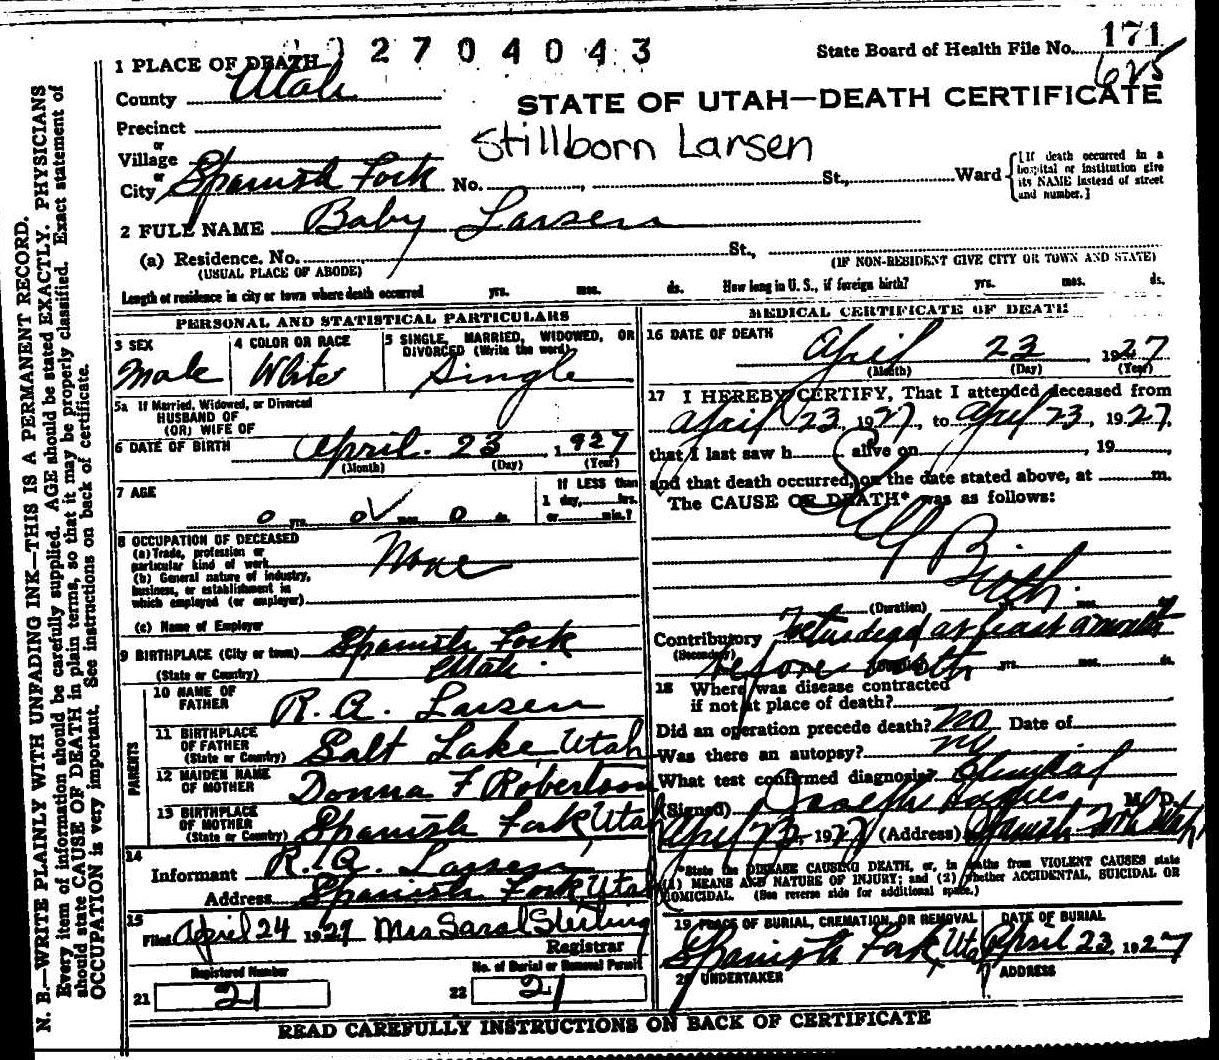 2704043
State Board of Health File No. 171
625
1 PLACE OF DEATH
County Utah
STATE OF UTAH—DEATH CERTIFICATE
Precinct
or
Village
Stillborn Larsen
or
City Spanish Fork No. , St., Ward
[If death occurred in a hospital or institution give its NAME instead of street and number.]
2 FULL NAME Baby Larsen
(a) Residence. No. St.,
(USUAL PLACE OF ABODE) (IF NON-RESIDENT GIVE CITY OR TOWN AND STATE)
Length of residence in city or town where death occurred yrs. mos. ds. How long in U. S., if foreign birth? yrs. mos. ds.
PERSONAL AND STATISTICAL PARTICULARS
3 SEX Male
4 COLOR OR RACE White
5 SINGLE, MARRIED, WIDOWED, OR DIVORCED (Write the word) Single
5a If Married, Widowed, or Divorced
HUSBAND OF
(OR) WIFE OF
6 DATE OF BIRTH April 23, 1927
(Month) (Day) (Year)
7 AGE
0 yrs. 0 mos. 0 ds.
If LESS than
1 day, hrs.
or min.?
8 OCCUPATION OF DECEASED
(a) Trade, profession or
particular kind of work None
(b) General nature of industry,
business, or establishment in
which employed (or employer)
(c) Name of Employer
9 BIRTHPLACE (City or town) Spanish Fork
(State or Country) Utah
PARENTS
10 NAME OF FATHER R. A. Larsen
11 BIRTHPLACE OF FATHER
(State or Country) Salt Lake, Utah
12 MAIDEN NAME OF MOTHER Donna F Robertson
13 BIRTHPLACE OF MOTHER
(State or Country) Spanish Fork, Utah
14
Informant R. A. Larsen
Address Spanish Fork Utah
15
Filed April 24 1927 Mrs Sarah Sterling
Registrar
Registered Number
21 21
No. of Burial or Removal Permit
22 21
MEDICAL CERTIFICATE OF DEATH
16 DATE OF DEATH
April 23, 1927
(Month) (Day) (Year)
17 I HEREBY CERTIFY, That I attended deceased from
April 23, 1927, to April 23, 1927,
that I last saw h alive on , 19
and that death occurred, on the date stated above, at m.
The CAUSE OF DEATH* was as follows:
Still Birth.
(Duration) yrs. mos.
Contributory Fetus dead at least a month
(Secondary) before birth (Duration) yrs. mos. ds.
18 Where was disease contracted
if not at place of death?
Did an operation precede death? No Date of
Was there an autopsy? no
What test confirmed diagnosis?
(Signed) Joseph Hughes M. D.
April 23, 1927 (Address) Spanish Fork Utah
*State the DISEASE CAUSING DEATH, or, in deaths from VIOLENT CAUSES state
(1) MEANS AND NATURE OF INJURY; and (2) whether ACCIDENTAL, SUICIDAL OR
HOMICIDAL. (See reverse side for additional space.)
19 PLACE OF BURIAL, CREMATION, OR REMOVAL Spanish Fork, Utah
DATE OF BURIAL April 23, 1927
20 UNDERTAKER ADDRESS
READ CAREFULLY INSTRUCTIONS ON BACK OF CERTIFICATE
N. B.—WRITE PLAINLY WITH UNFADING INK—THIS IS A PERMANENT RECORD.
Every item of information should be carefully supplied. AGE should be stated EXACTLY. PHYSICIANS
should state CAUSE OF DEATH in plain terms, so that it may be properly classified. Exact statement of
OCCUPATION is very important. See instructions on back of certificate.